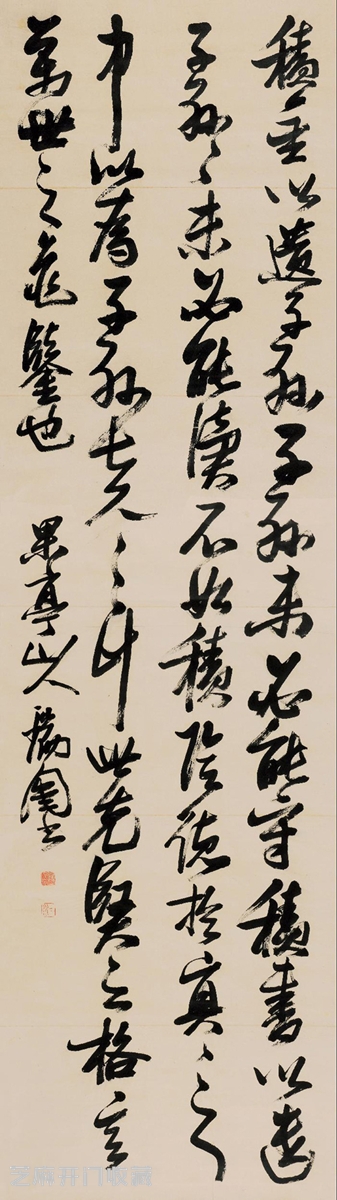 積金以遺子孫子孫未必能守積書以遺
子孫〻未必能讀不如積陰德於冥〻之
中以為子孫長久之計此先賢之格言
萬世之龜鑒也
果亭山人瑞圖書
芝麻开门收藏